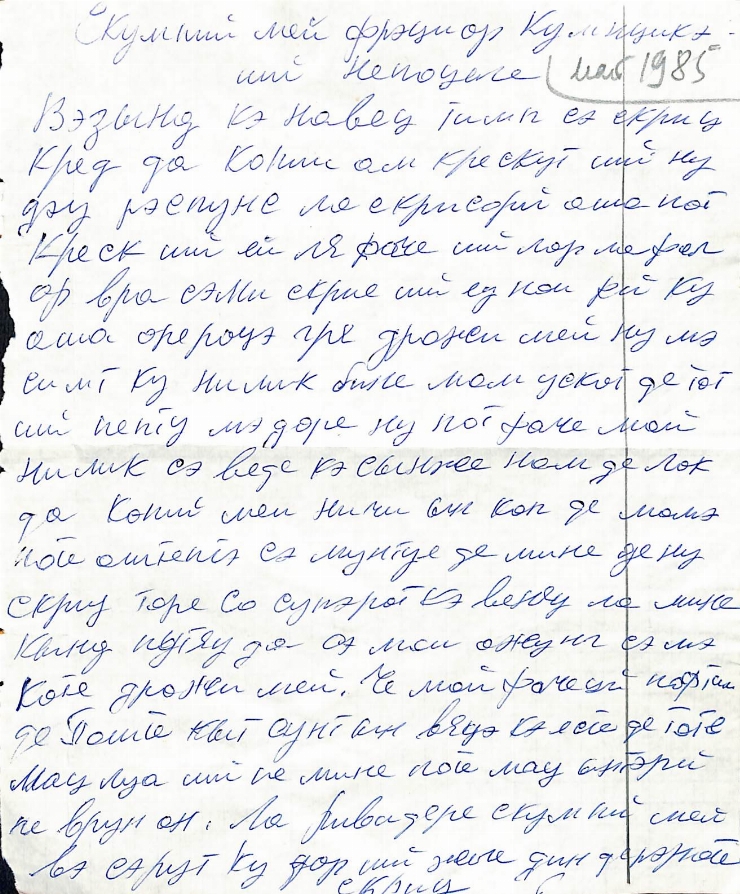 Скумпий мей фрэциор Кумнцикэ-
ший Непоцеле май 1985
Вэзынд кэ навец тимп сэ скриц
Кред да Копии ам крескут ший ну
дэу рэспунс ла скрисорй аша пот
Креск ший ей ля фаче ший лор ла фел
ор вра сэли скрие ший еу нои фй ку
аша
дражи мей ну мэ
симт ку нимик бине мам ускат де тот
ший пепту мэ доре ну пот фаче май
нимик сэ веде кэ сынже нам де лок
да Копий мей ничи ын кап де мамэ
поте аштептэ сэ мунтуе де мине де ну
скриу таре Со супэрат кэ вениу ла мине
Кынд путяу да сэ май ажунг сэ мэ
Коте дражи мей. Че май фачецй
де Поште Кыт сунт ын вяцэ кэ есте де тоте
Мац луа ший пе мине поте мац ынтэрй
пе врун ан. Ла Ривидере скумпий мей
вэ сэрут Ку дор ший желе дин депэртаре
скриц